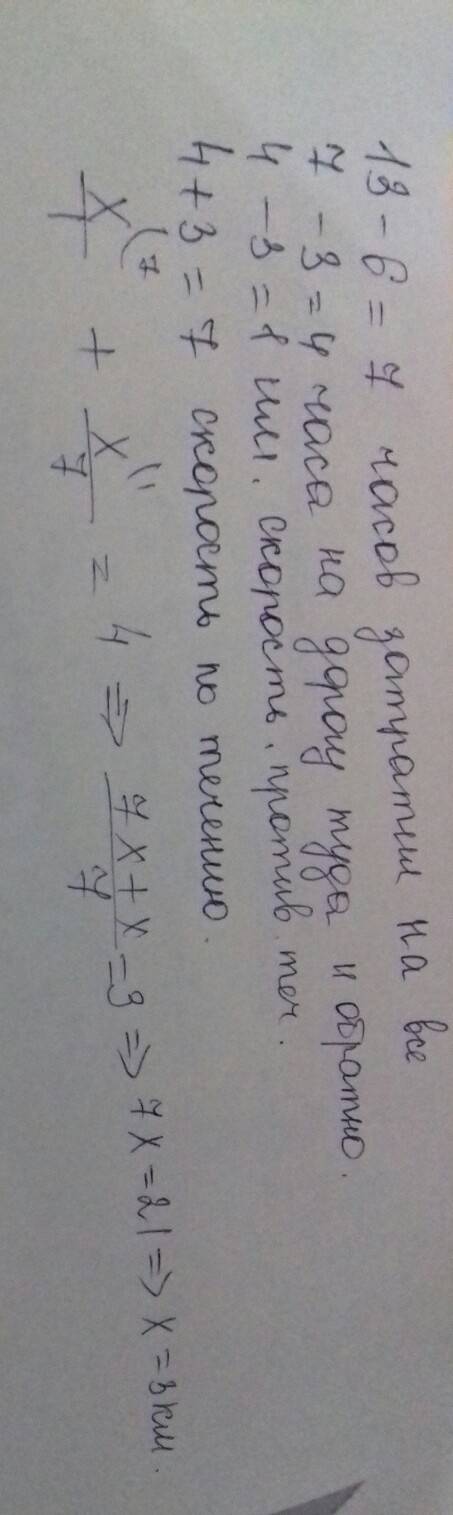 13 - 6 = 7 часов затратил на все
7 - 3 = 4 часа на дорогу туда и обратно.
4 - 3 = 1 скорость против теч.
4 + 3 = 7 скорость по течению.
x/1 (7 + x/7 (1 = 4 => 7x + x/7 = 3 => 7x = 21 => x = 3 км.